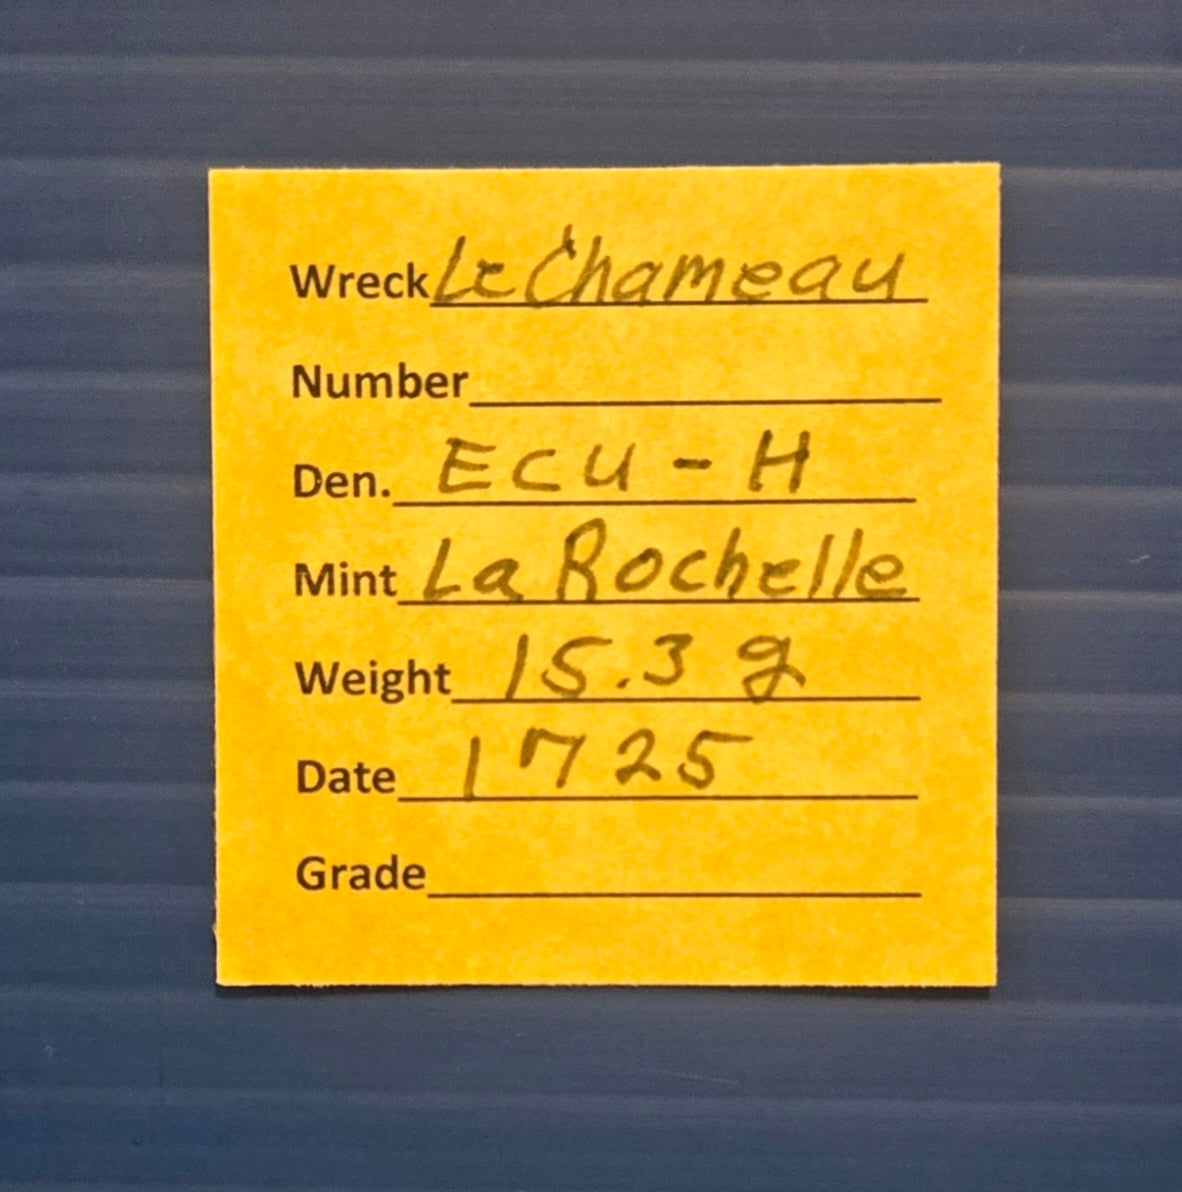 Wreck Le Chameau
Number
Den. ECU - H
Mint La Rochelle
Weight 15.3 g
Date 1725
Grade